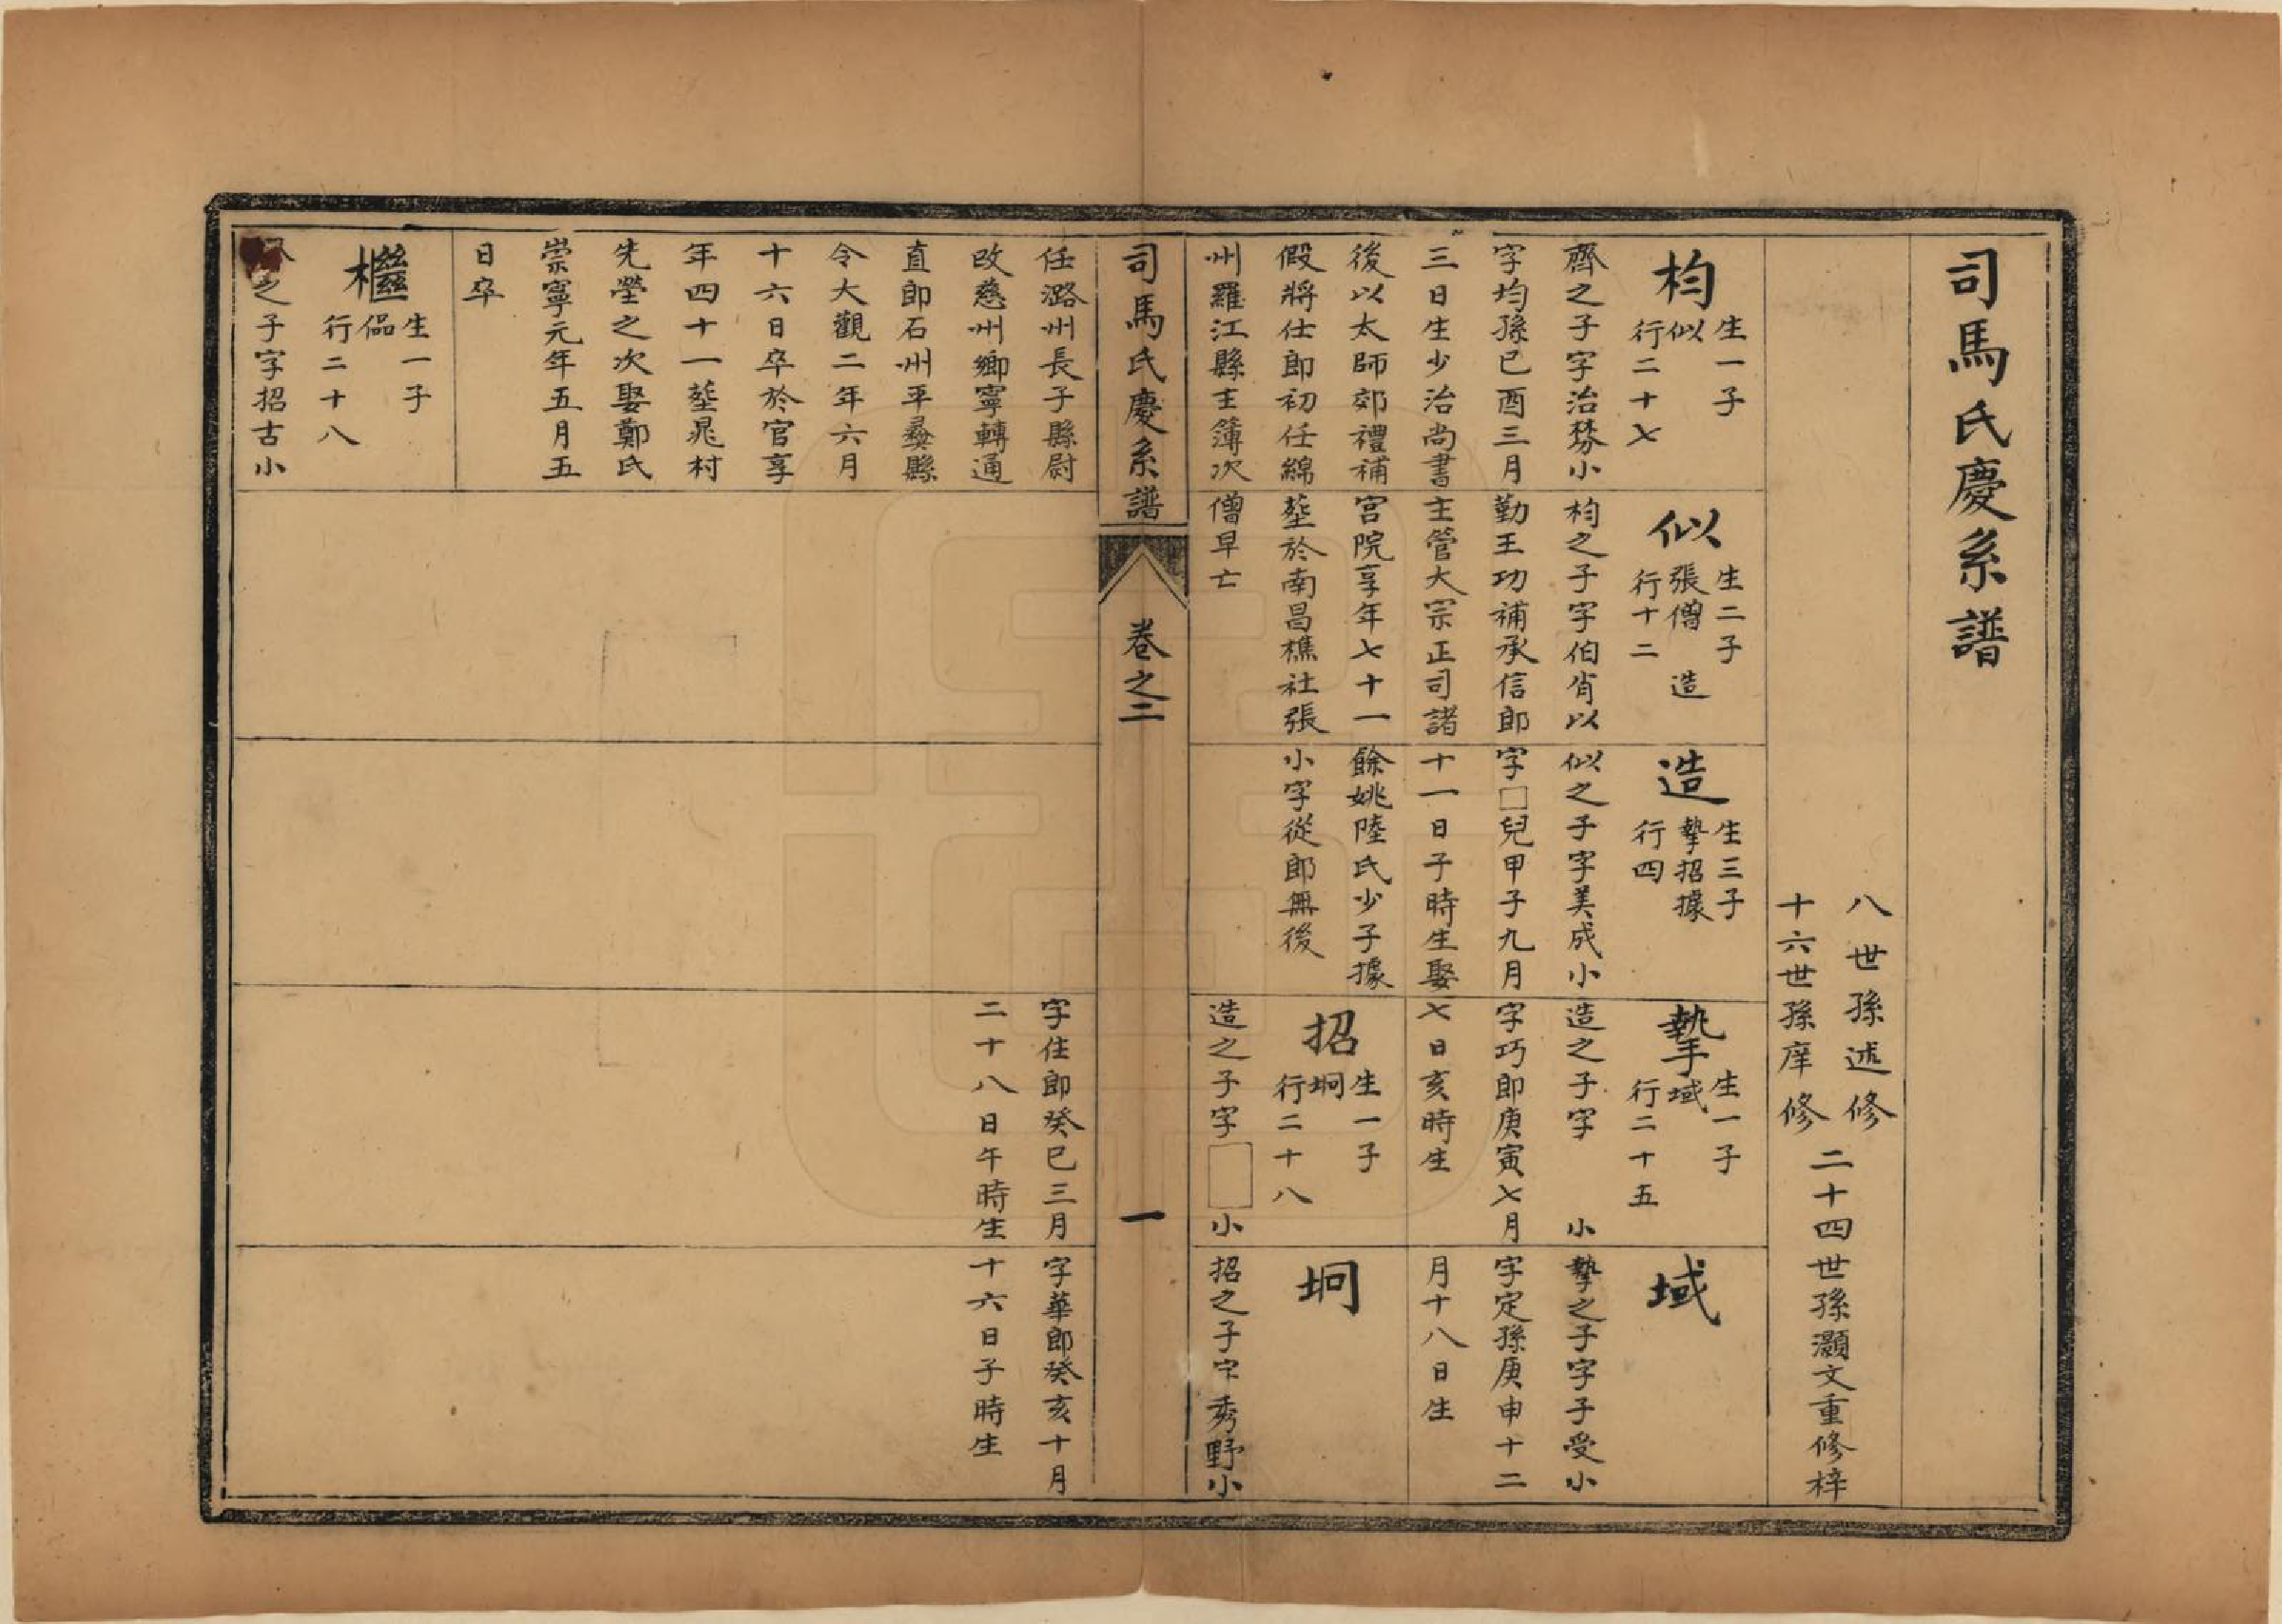 司馬氏慶系譜
八世孫述修
十六世孫庠修
二十四世孫灝文重修梓
枃
生一子
似
行二十七
齊之子字治棼小
字均孫已酉三月
三日生少治尚書
後以太師郊禮補
假將仕郎初任綿
州羅江縣主簿次
似
生二子
張僧 造
行十二
枃之子字伯肖以
勤王功補承信郎
主管大宗正司諸
宮院享年七十一
塟於南昌樵社張
僧早亡
造
生三子
摯招據
行四
似之子字美成小
字□兒甲子九月
十一日子時生娶
餘姚陸氏少子據
小字從郎無後
摯
生一子
域
行二十五
造之子字 小
字巧郎庚寅七月
七日亥時生
招
生一子
坰
行二十八
造之子字□小
域
摯之子字子受小
字定孫庚申十二
月十八日生
坰
招之子字秀野小
司馬氏慶系譜
卷之二
一
任潞州長子縣尉
改慈州鄉寧轉通
直郎石州平彝縣
令大觀二年六月
十六日卒於官享
年四十一塟晁村
先塋之次娶鄭氏
崇寧元年五月五
日卒
字住郎癸巳三月
二十八日午時生
字華郎癸亥十月
十六日子時生
生一子
偘
行二十八
之子字招古小